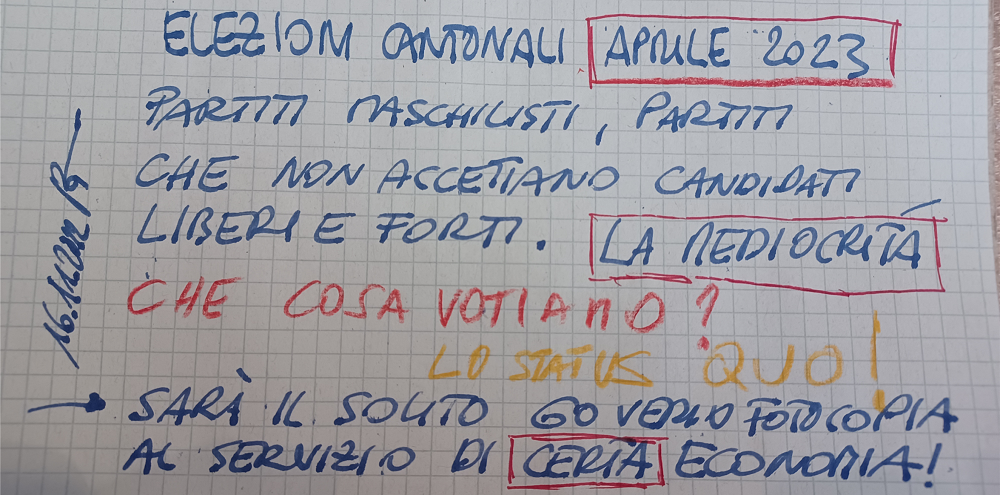 ELEZIONI CANTONALI APRILE 2023
PARTITI MASCHILISTI, PARTITI
CHE NON ACCETTANO CANDIDATI
LIBERI E FORTI. LA MEDIOCRITÀ
CHE COSA VOTIAMO?
LO STATUS QUO!
→ SARÀ IL SOLITO GOVERNO FOTOCOPIA
AL SERVIZIO DI CERTA ECONOMIA!